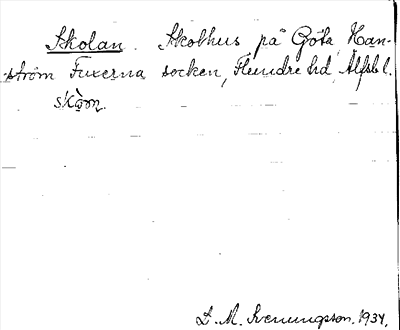 Skolan. Skolhus på Göta, Han-
ström Fuxerna socken, Flundre hd, Älfsb l.
skòm.
D. M. Svenungsson. 1934.